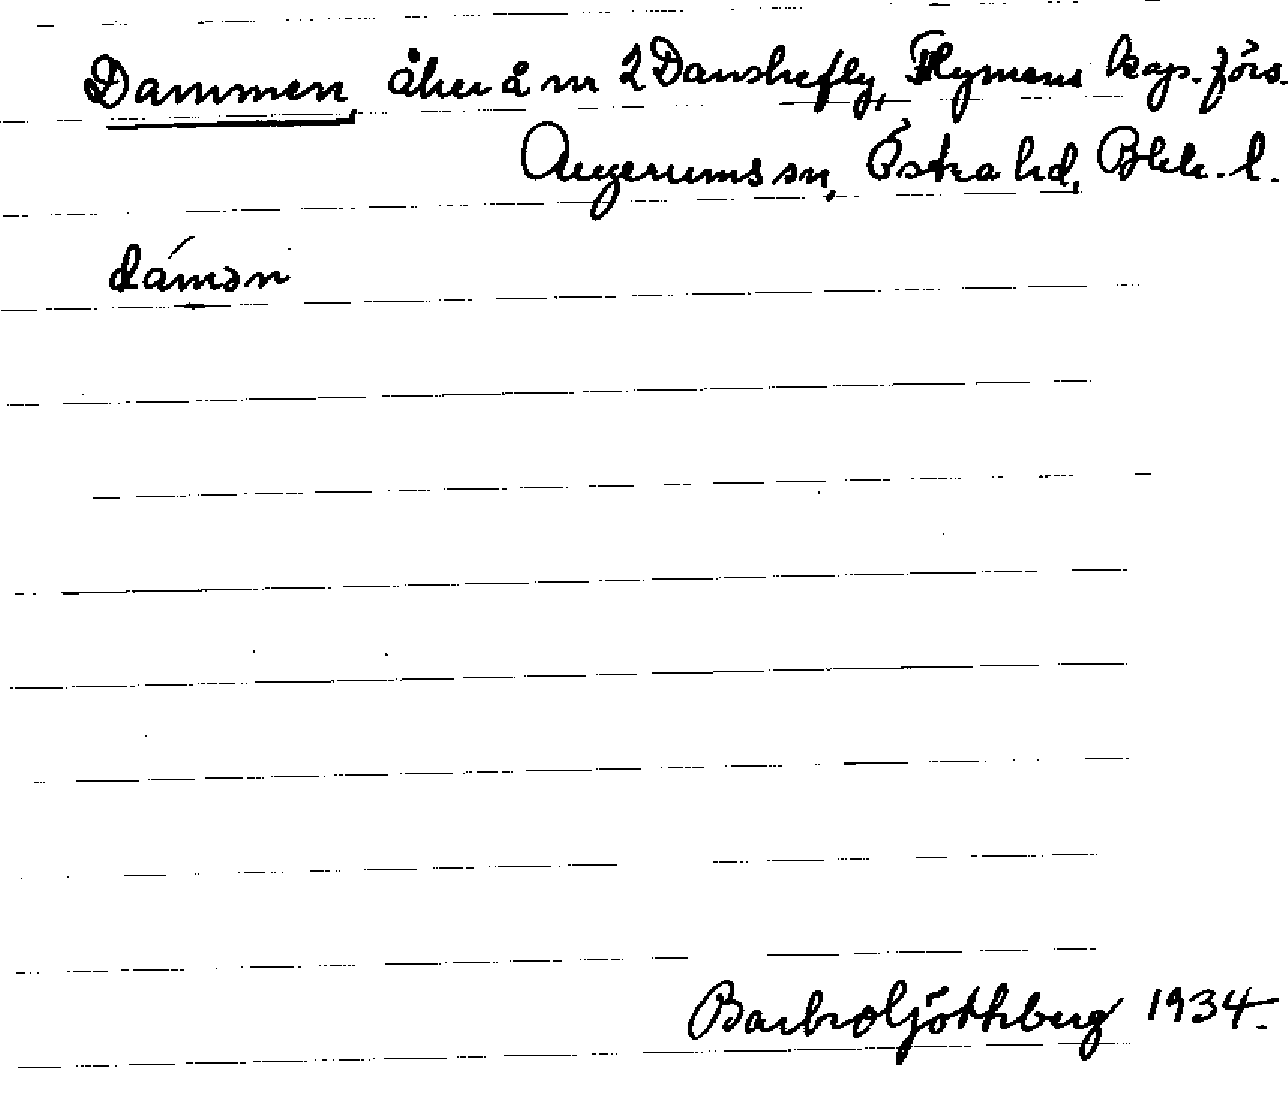 Dammen, åker å nr 2 Danskefly, Flymens kap. förs.
Augerums sn, Östra hd, Blek. l.
dámən
Barbro Götlberg 1934.